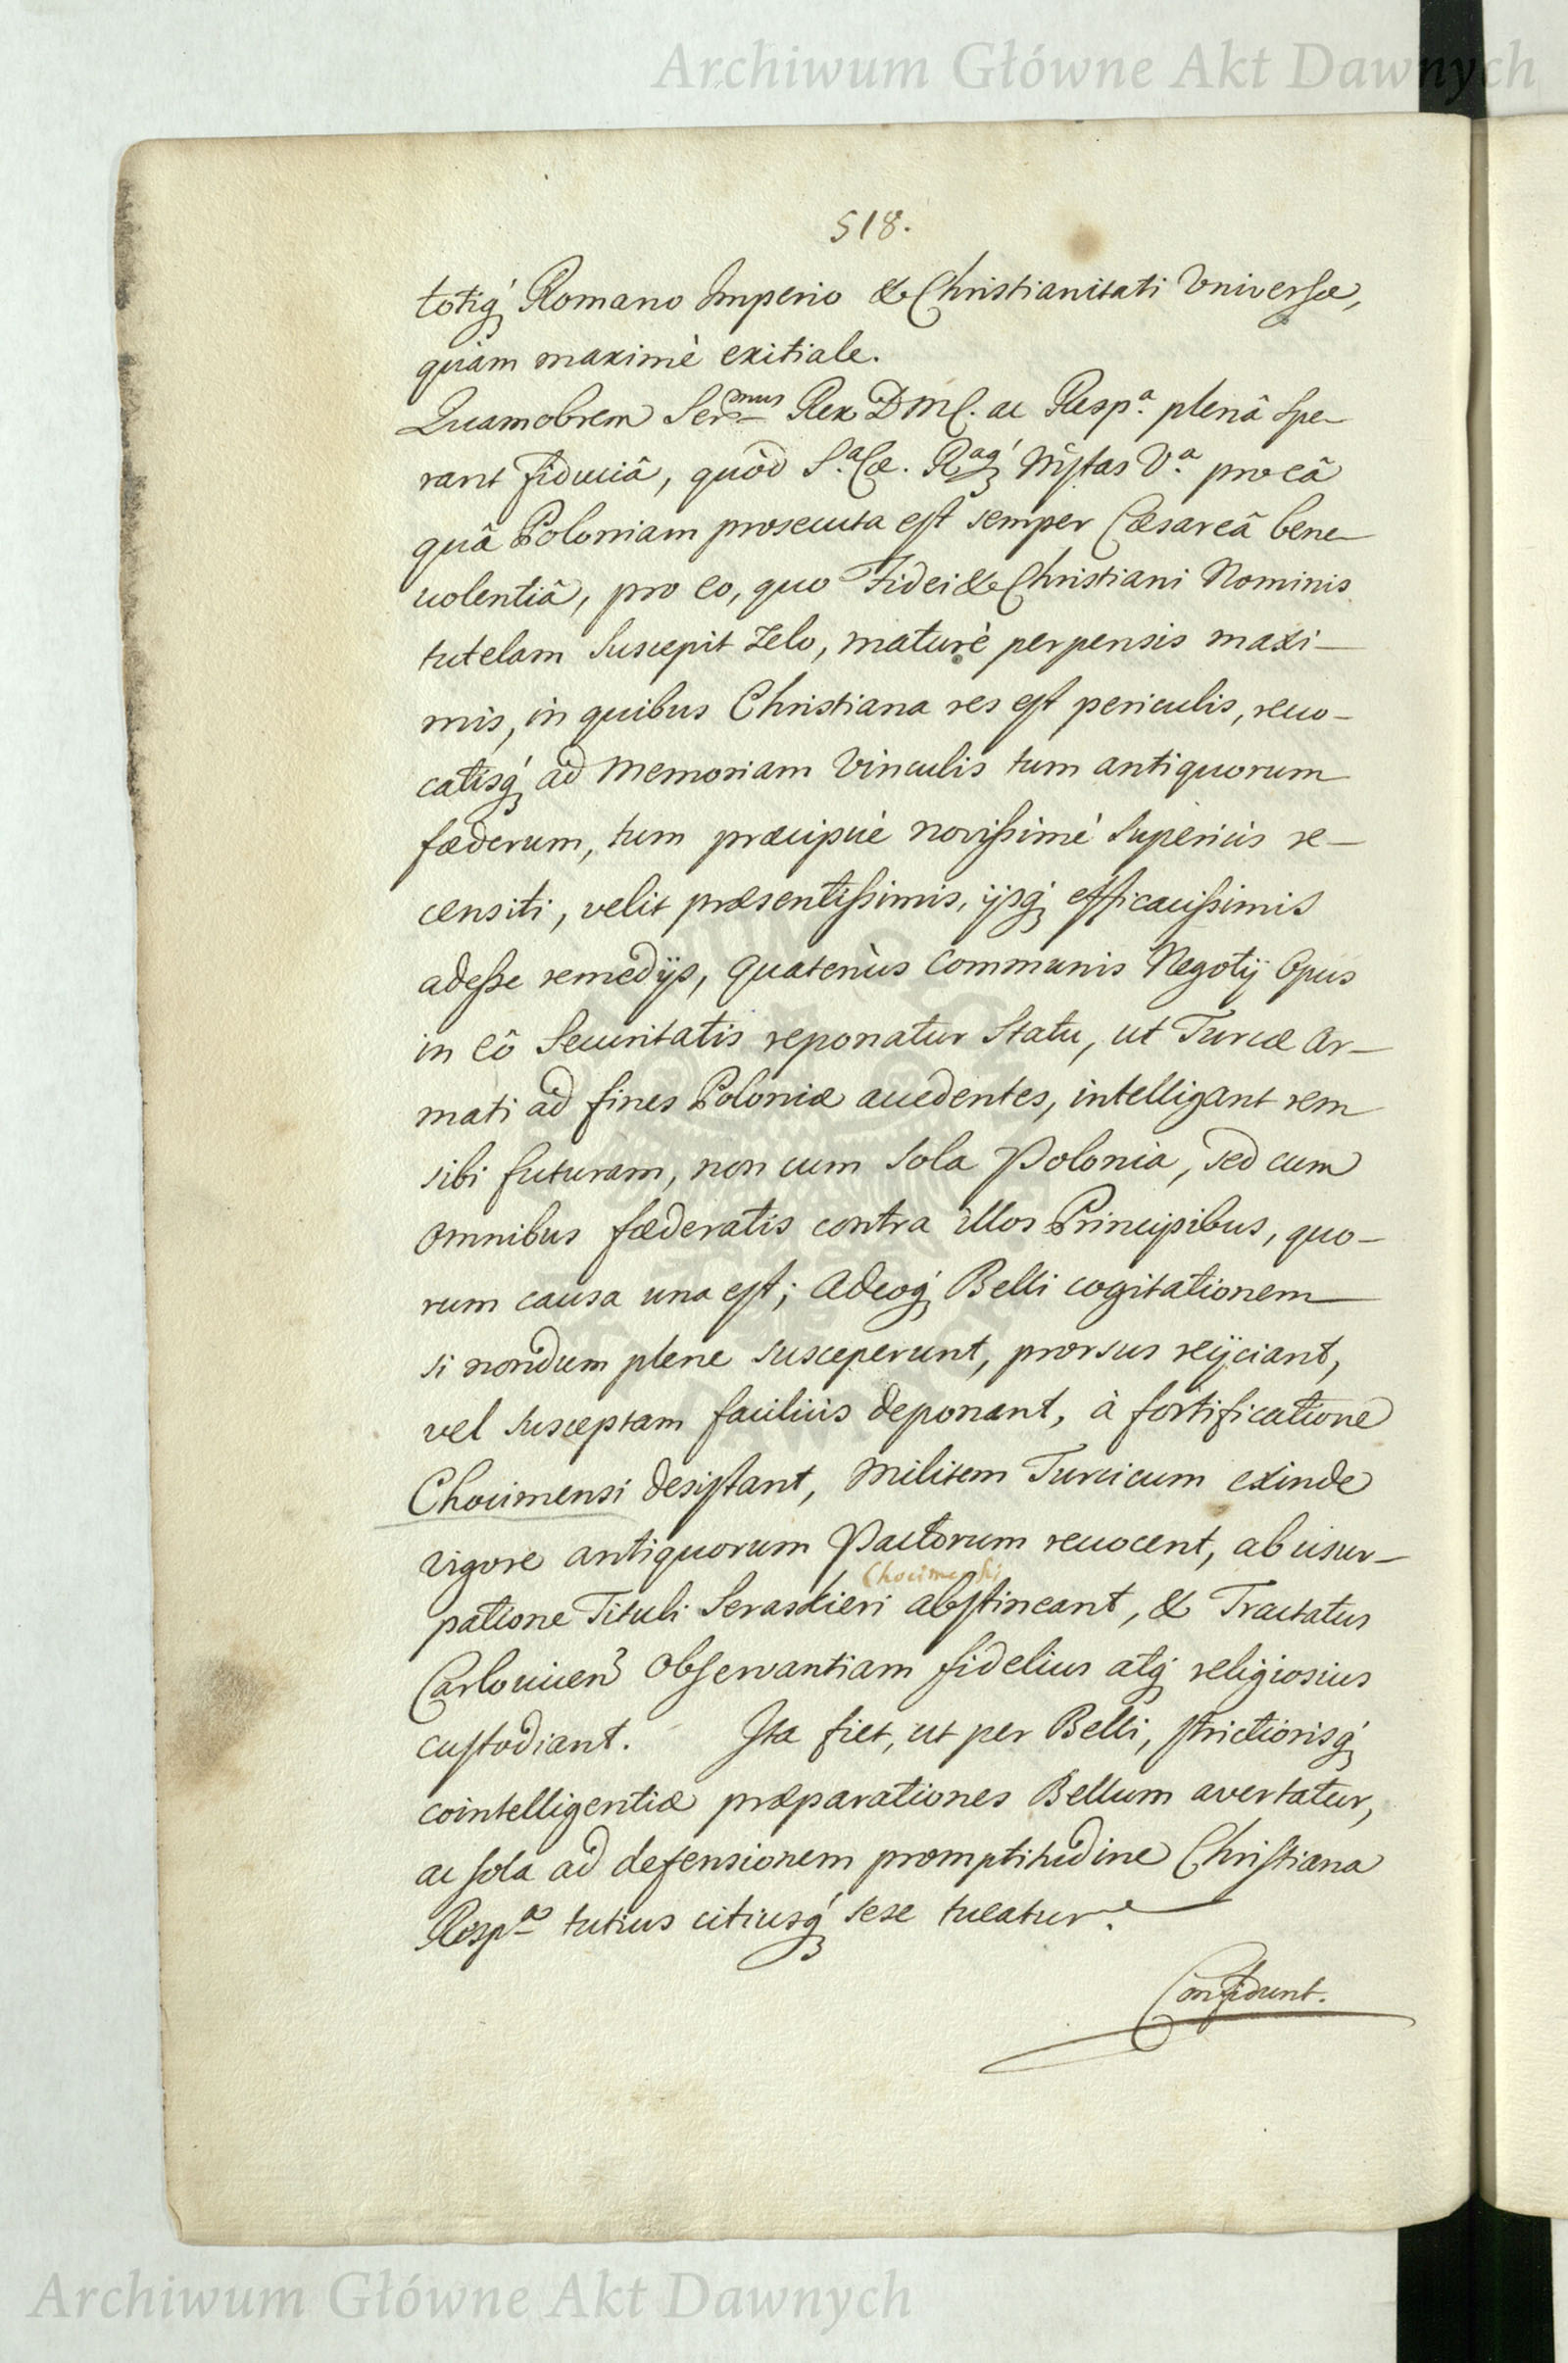 Archiwum Główne Akt Dawnych
518.
totiq́ꝫ Romano Imperio & Christianitati Universæ,
quàm maximè exitiale.
Quamobrem Serᵐᵘˢ Rex D M C. ac Respᵃ. plenâ spe–
rant fiduciâ, quòd S.ᵃ Cæ. Rᵃq́ꝫ Mʼstas V.ᵃ pro eâ
quâ Poloniam prosecuta est semper Cæsareâ bene–
volentiâ, pro eo, quo Fidei & Christiani Nominis
tutelam suscepit zelo, maturè perpensis maxi–
mis, in quibus Christiana res est periculis, revo–
catisq́ꝫ ad memoriam vinculis tum antiquorum
fæderum, tum præcipuè novissimè superiùs re–
censiti, velit præsentissimis, ijsqꝫ efficacissimis
adesse remedijs, quatenùs communis Negotij Opus
in eô securitatis reponatur statu, ut Turcæ ar–
mati ad fines Poloniæ accedentes, intelligant rem
sibi futuram, non cum sola Polonia, sed cum
omnibus fæderatis contra illos Principibus, quo–
rum causa una est; adeoq́ꝫ Belli cogitationem
si nondum plene susceperunt, prorsus reijciant,
vel susceptam faciliùs deponant, à fortificatione
Chocimensi desistant, militem Turcicum exinde
vigore antiquorum Pactorum revocent, ab usur–
Chocimensi
patione Tituli Seraskieri abstineant, & Tractatus
Carlovicenꝫ observantiam fidelius atqꝫ religiosius
custodiant. Ita fiet, ut per Belli, strictiorisq́ꝫ
cointelligentiæ præparationes Bellum avertatur,
ac sola ad defensionem promptitudine Christiana
Respᵃ tutius citiusq́ꝫ sese tueatur.
Confidunt.
Archiwum Główne Akt Dawnych